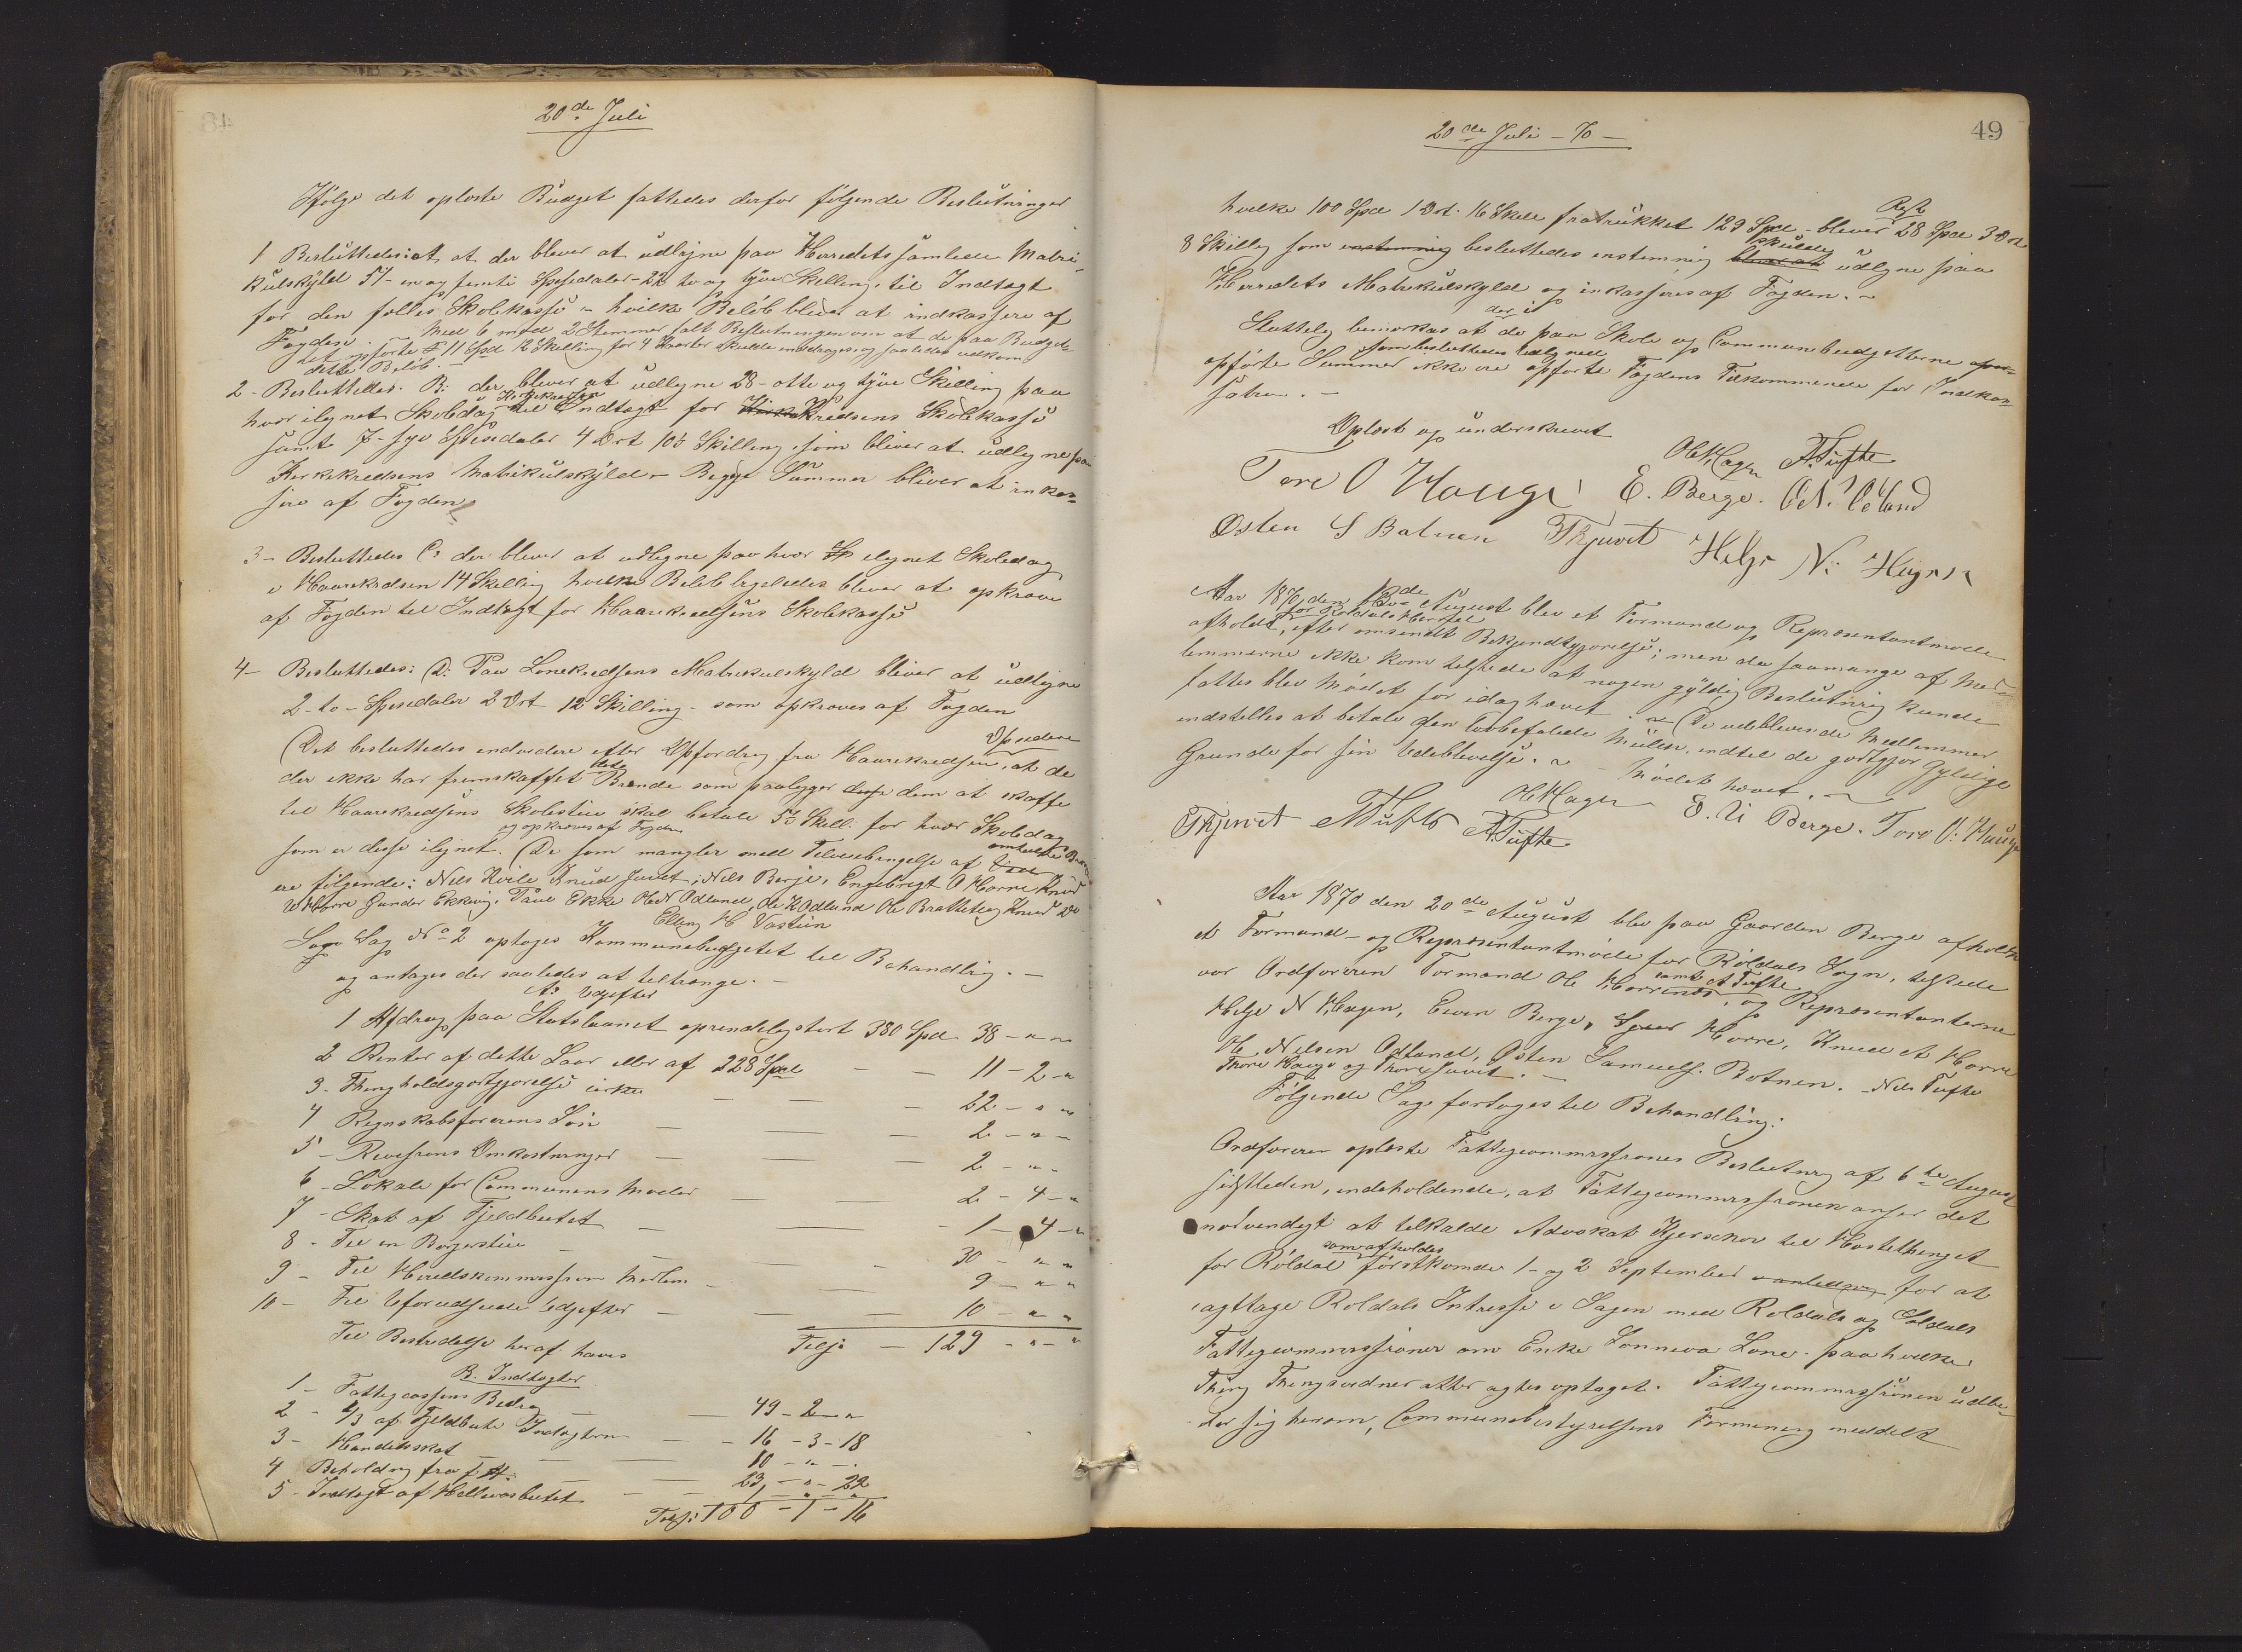 20de Juli
Ifølge det oplæste Budget fattedes derfor følgende Beslutninger
1 Besluttedes: at der bliver at udligne paa Herredets samlede Matri-
kulskyld 51 - en og femti Spesiedaler - 22 to og tyve Skilling, til Indtægt
for den fælles Skolekasse - hvilke Beløb bliver at indkassere af
Fogden. - Med 6 mod 2 Stemmer falt Beslutningen om at de paa Budget-
det opførte 11 Spd 12 Skilling for 4 skulde inddrages og saaledes udkom
dette Beløb. -
2 - Besluttedes. B: der bliver at udligne 28 - otte og tyve Skilling paa
hver ilignet Skoledag til Indtægt for Kirkekredsens Skolekasse
samt 7 - syv Spesiedaler 4 Ort 10½ Skilling, som bliver at udligne paa
Kirkekredsens Matrikulskyld - Begge Summer bliver at inkas-
sere af Fogden
3 - Besluttedes C: der bliver at udligne paa hver ilignet Skoledag
i Haarekredsen 14 Skilling hvilke Beløb ligeledes bliver at opkræve
af Fogden til Indtægt for Haarekredsens Skolekasse
4 - Besluttedes: D: Paa Lonekredsens Matrikulskyld bliver at udligne
2 - to - Spesiedaler 2 Ort 12 Skilling - som opkræves af Fogden
(Det besluttedes endvidere efter Opfordring fra Haarekredsen, at de Opsidere
der ikke har fremskaffet Brænde som paaligger dem at skaffe
til Haarekredsens Skolestue skal betale 5½ Skill. for hver Skoledag
og opkræves af Fogden
som er disse ilignet. (De som mangler med Tilveiebringelse af omtalte
ere følgende: Nils Hvile Knud Juvet, Nils Berje, Engebrigt O Horre Knud
Horre Gunder Ekkeing. Paul Ekke Ole N Odland, Ole K Odland Ole Bratteteig Knud
Elling H Vastun
Sag No 2 optoges Kommunebudgetet til Behandling. -
og antages der saaledes at tiltrænge. -
A: Udgifter
1 Afdrag paa Statslaanet oprindelig stort 380 Spd 38 - " "
2 Renter af dette Laan eller af 228 Spd - - 11 - 2 - "
3 - Thingholdsgodtgjørelse cirka - - - 22 - " "
4 Regnskabsførerens Løn - - - 2 - " -
5 - Revisions Omkostninger - - - 2 - " -
6 - Lokale for Communens Møder - - 2 - 4 - "
7 - Skat af Fjeldbeitet - - - 1 - 4 - "
8 - Til en Borgerstue - - - 30 - " "
9 - Til Herredskommissions Medlem - - 9 - " "
10 - Til Uforudseede Udgifter - - - 10 - " "
Tils: - 129 - " - "
Til Bestridelse heraf haves
B. Indtægter
1 - Fattigcassens Bidrag - - 49 - 2 - "
2 - 2/3 af Fjeldbeite Indtægten - - 16 - 3 - 18
3 - Handelsskat - - - 10 - " - .
4 Beholdning fra f. A: - - 23 - " - 22
5 - Indtægt af Hellevasbeitet - - 1 - " - "
Tils: 100 - 1 - 16
49
20de Juli - 70 -
hvilke 100 Spd 1 Ort. 16 Skill fratrukket 129 Spd - bliver Rest 28 Spd 3 Ort
8 Skilling som besluttedes enstemmig skulde udligne paa
Herredets Matrikulskyld og inkasseres af Fogden. -
Sluttelig bemærkes at de paa Skole og Communebudgetterne
opførte Summer som besluttedes udlignede ikke ere opførte Fogdens Tilkommende for Indkas-
satien. -
Oplæst og underskrevet
Ole Hagen A. Tufte
Tore O Houge E. Berge. O N. Odland
Østen S Botnen T Kjuvet Helge N. Hagen
Aar 1870 den August blev et Formand og Repræsentantmøde
for Røldals Herred
afholdt, efter omsendt Bekjendtgjørelse; men da saamange af Med-
lemmerne ikke kom tilstede at nogen gyldig Beslutning kunde
fattes blev Mødet for idag hævet. - De udeblevende Medlemmer
indstilles at betale den lovbefalede Mulct, indtil de godtgjør Gyldige
Grunde for sin Udeblivelse. - Mødet hævet. -
Ole Hagen E. N Berge. Tore O. Hauge
T Kjuvet N Tufte A. Tufte
Aar 1870 den 20de August blev paa Gaarden Berge afholdt
et Formand - og Repræsentantmøde for Røldals Sogn, tilstede
var Ordføreren Formand Ole Horre samt A Tufte, og Repræsentanterne
Helge N Hagen, Even Berge, Horre, Knud A Horre
Ole Nilsen Odland, Østen Samuels. Botnen. - Nils Tufte
Thore Hauge og Thore Juvet. -
Følgende Sage foretoges til Behandling:
Ordføreren oplæste Fattigcommissionens Beslutning af 6te August
sidstleden, indeholdende, at Fattigcommissionen anser det
nødvendigt at tilkalde Advokat Kjerschow til Høsttthinget
for Røldal som afholdes førstkomde 1 - og 2 September for at
iagttage Røldals Intresse i Sagen med Røldals og Suldals
Fattigcommissioner om Enke Sønneva Lone - paa hvilke
Thing Thingsvidner atter agtes optaget. Fattigcommissionen udbe-
der sig herom, Communebestyrelsens Formening meddelt